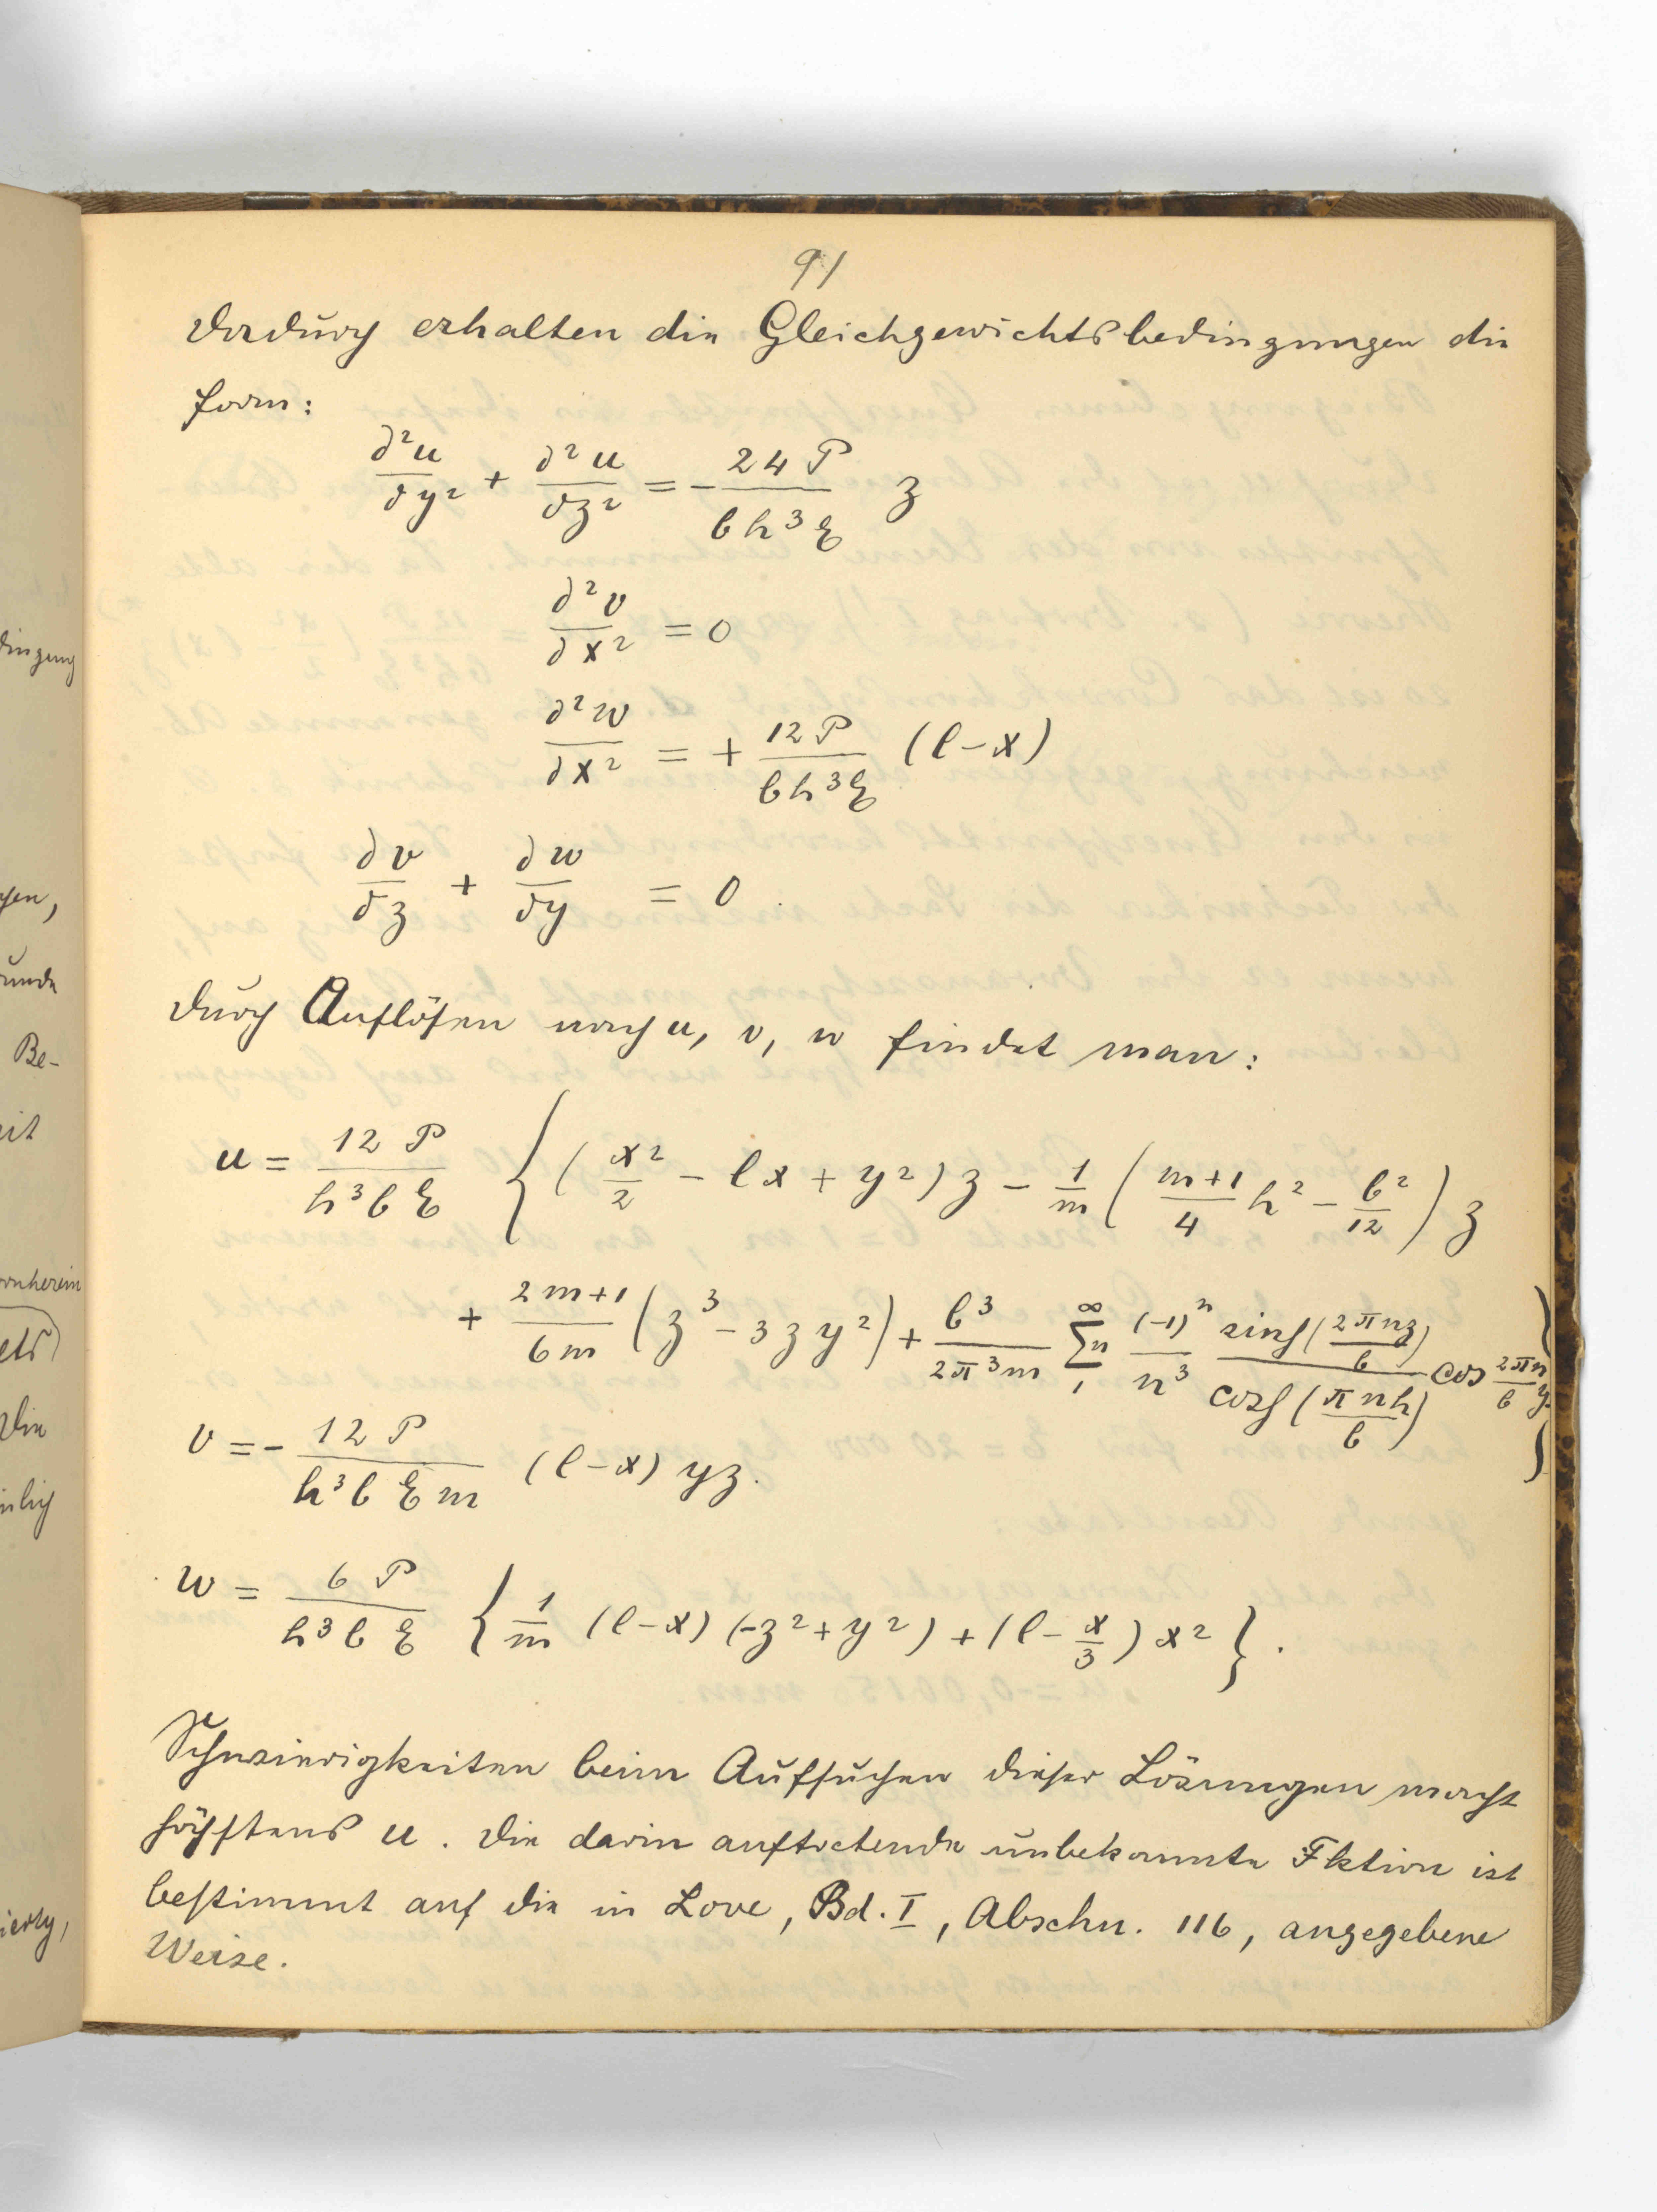 91
Dadurch erhalten die Gleichgewichtsbedingungen die
Form:
∂²u/∂y² + ∂²u/∂z² = - 24 P/(b h³ E) z
∂²v/∂x² = 0
∂²w/∂x² = + 12 P/(b h³ E) (l-x)
∂v/∂z + ∂w/∂y = 0.
Durch Auflösen nach u, v, w findet man:
u = 12 P/(h³ b E) { (x²/2 - lx + y²) z - 1/m ( (m+1)/4 h² - b²/12 ) z
+ (2m+1)/(6m) (z³ - 3zy²) + b³/(2π³m) ∑ₙ₁^∞ (-1)ⁿ/n³ sinh(2πnz/b)/cosh(πnh/b) cos 2πn/b y }
v = - 12 P/(h³ b E m) (l-x) yz.
w = 6 P/(h³ b E) { 1/m (l-x) (-z²+y²) + (l - x/3) x² }.
Schwierigkeiten beim Aufsuchen dieser Lösungen macht
höchstens u. Die darin auftretende unbekannte Fktion ist
bestimmt auf die in Love, Bd. I, Abschn. 116, angegebene
Weise.
dingung
Be-
vornherein
Die